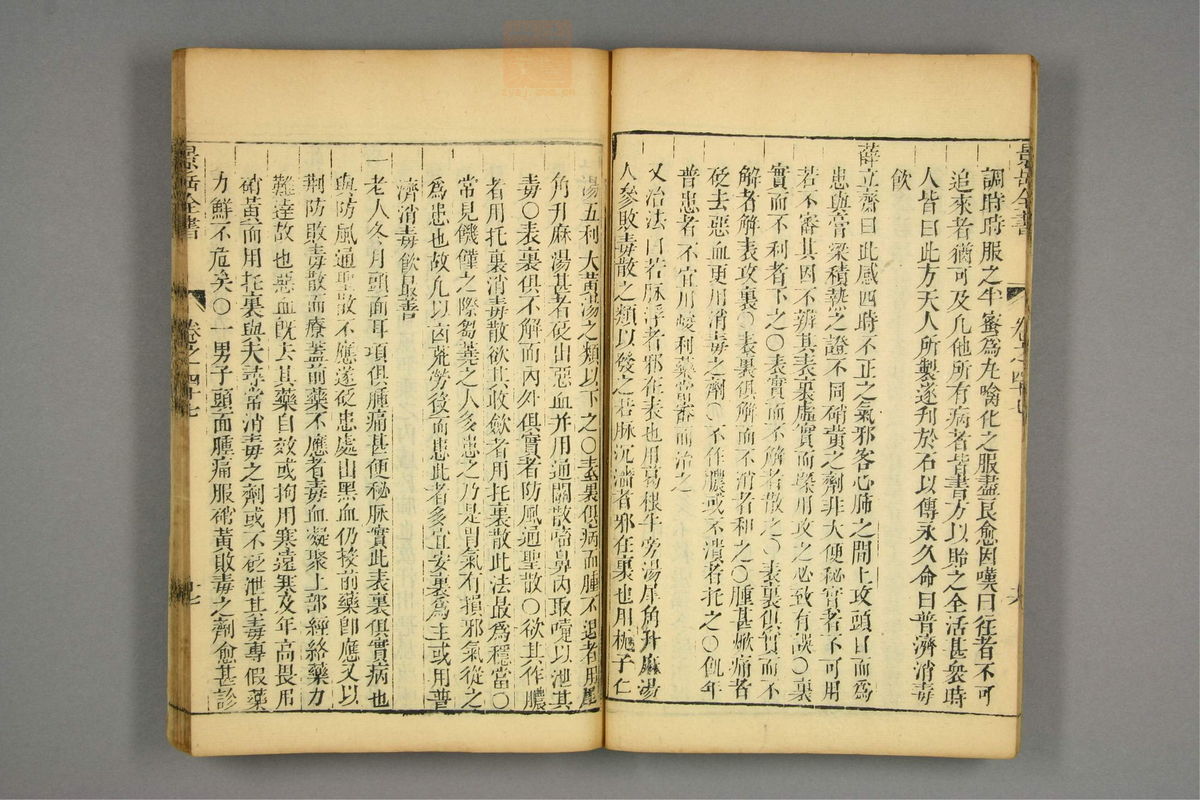 景岳全書
卷之四十七
調時時服之半蜜爲丸噙化之服盡良愈因嘆曰往者不可
追來者猶可及凡他所有病者皆書方以貽之全活甚衆時
人皆曰此方天人所製遂刋於石以傳永久命曰普濟消毒
飲
薛立齋曰此感四時不正之氣邪客心肺之間上攻頭目而爲
患與膏粱積熱之證不同硝黄之劑非大便秘實者不可用
若不審其因不辨其表裏虛實而躁用攻之必致有誤〇裏
實而不利者下之〇表實而不解者散之〇表裏俱實而不
解者解表攻裏〇表裏俱解而不消者和之〇腫甚焮痛者
砭去惡血更用消毒之劑〇不作膿或不潰者托之〇饑年
普患者不宜用峻利藥當審而治之
又治法曰若脉浮者邪在表也用葛根牛旁湯犀角升麻湯
人參敗毒散之類以發之若脉沉濇者邪在裏也用桃子仁
湯五利大黄湯之類以下之〇表裏俱病而腫不退者用犀
角升麻湯甚者砭出惡血并用通關散嚏鼻內取嚏以泄其
毒〇表裏俱不解而內外俱實者防風通聖散〇欲其作膿
者用托裏消毒散欲其收斂者用托裏散此法最爲穩當〇
常見饑饉之際芻蕘之人多患之乃是胃氣有損邪氣從之
爲患也故凡以凶荒勞役而患此者多宜安裏爲主或用普
濟消毒飲最善
一老人冬月頭面耳項俱腫痛甚便秘脉實此表裏俱實病也
與防風通聖散不應遂砭患處出黑血仍投前藥卽應又以
荆防敗毒散而療蓋前藥不應者毒血凝聚上部經絡藥力
難達故也惡血旣去其藥自效或拘用寒遠寒及年高畏用
硝黄而用托裏與夫尋常消毒之劑或不砭泄其毒專假藥
力鮮不危矣〇一男子頭面腫痛服硝黄敗毒之劑愈甚診
景岳全書
卷之四十七